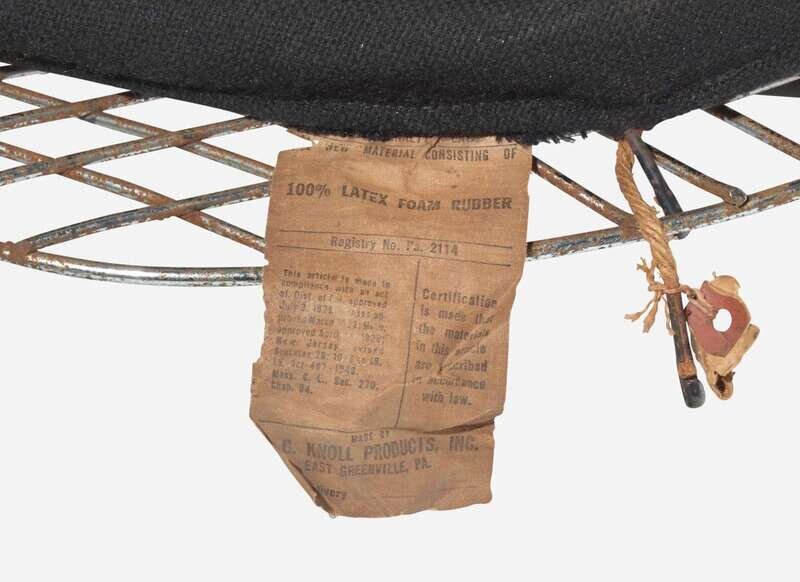 NEW MATERIAL CONSISTING OF
100% LATEX FOAM RUBBER
Registry No. Pa. 2114
This article is made in
compliance with an act
of. Dist. of approved
July 3, 1926.
approved
New Jersey revised
Statutes 26:10
Mass. G. L., Sec. 270,
Chap. 94.
Certification
is made that
the materials
in this article
are described
in accordance
with law.
MADE BY
G. KNOLL PRODUCTS, INC.
EAST GREENVILLE, PA.